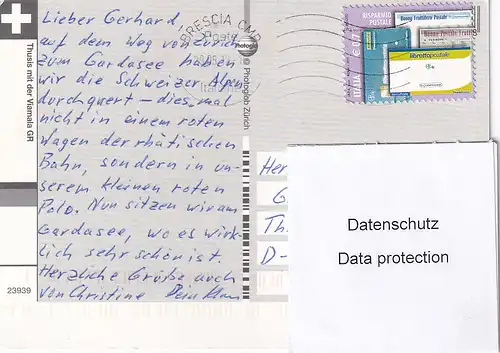 Lieber Gerhard,
auf dem Weg von Zürich
zum Gardasee haben
wir die Schweizer Alpen
durchquert – diesmal
nicht in einem roten
Wagen der rhätischen
Bahn, sondern in un-
serem kleinen roten
Polo. Nun sitzen wir am
Gardasee, wo es wirk-
lich sehr schön ist.
Herzliche Grüße auch
von Christine Dein Klaus
Thusis mit der Viamala GR
23939
© Photoglob Zürich
Photoglob
BRESCIA CMP
Poste
RISPARMIO
POSTALE
ITALIA
Buono Fruttifero Postale
librettopostale
Her
G
Th
D-
Datenschutz
Data protection